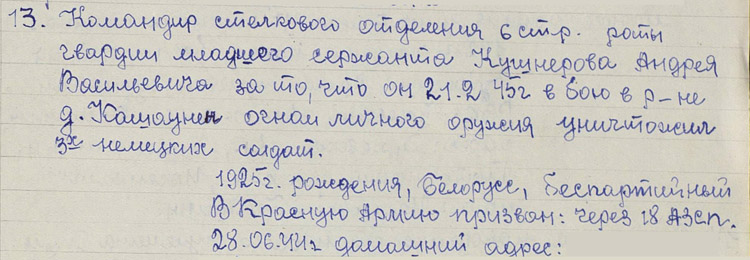 13. Командир стелкового отделения 6 стр. роты
гвардии младшего сержанта Кушнерова Андрея
Васильевича за то, что он 21.2 45г в бою в р-не
д. Кашаунен огнем личного оружия уничтожил
3х немецких солдат.
1925г. рождения, Белорусс, беспартийный
В Красную Армию призван: через 18 АЗСП.
28.06.44г домашний адрес: